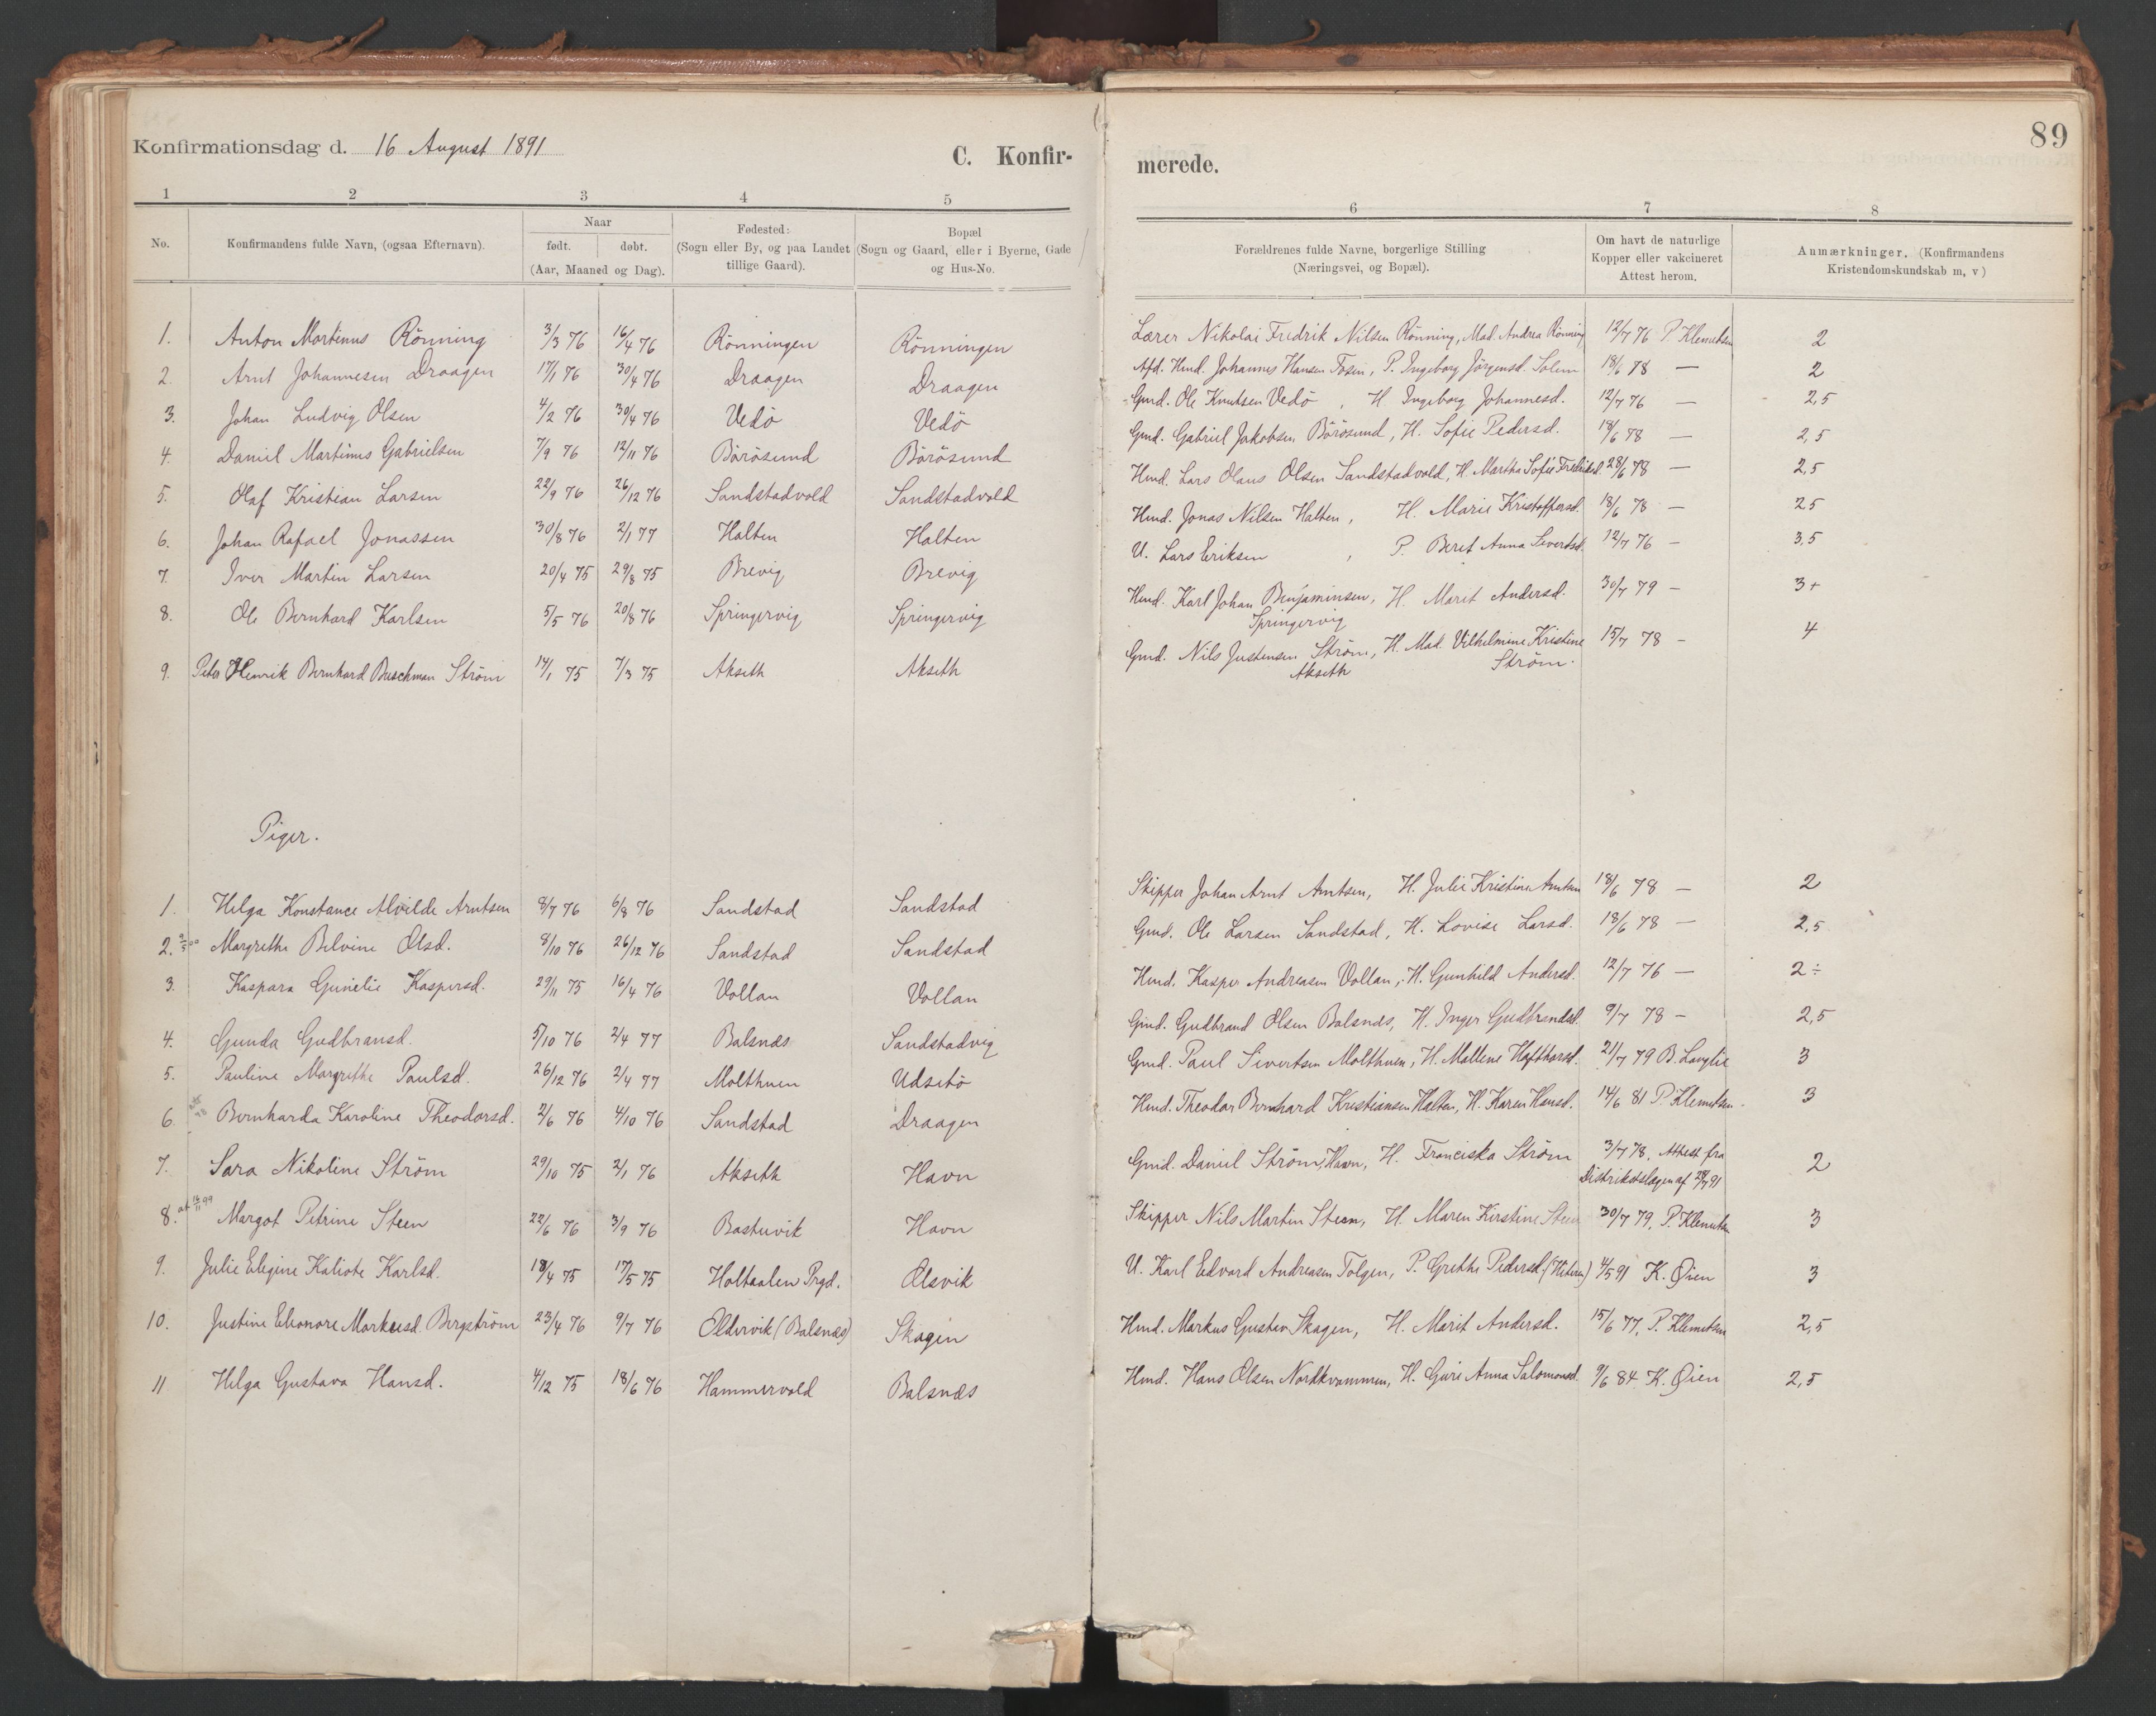 Konfirmationsdag d. 16 August 1891
C. Konfir-
merede.
89
1 2 3 4 5 6 7 8
No.
Konfirmandens fulde Navn, (ogsaa Efternavn).
Naar
født. døbt.
(Aar, Maaned og Dag).
Fødested:
(Sogn eller By, og paa Landet
tillige Gaard).
Bopæl
(Sogn og Gaard, eller i Byerne, Gade
og Hus-No.
Forældrenes fulde Navne, borgerlige Stilling
(Næringsvei, og Bopæl).
Om havt de naturlige
Kopper eller vakcineret
Attest herom.
Anmærkninger. (Konfirmandens
Kristendomskundskab m, v)
1. Anton Martinus Rönning 3/3 76 16/4 76 Rönningen Rönningen Lærer Nikolai Fredrik Nilsen Rönning, Mad. Andrea Rönning 12/7 76 P. Klemetsen 2
2. Arnt Johannesen Draagen 17/1 76 30/4 76 Draagen Draagen Afd. Hmd. Johannes Hansen Fosen, P. Ingeborg Jörgensd. Solem 18/6 78 — 2
3. Johan Ludvig Olsen 4/2 76 30/4 76 Vedö Vedö Gmd. Ole Knutsen Vedö, H. Ingeborg Johannesd. 12/7 76 — 2,5
4. Daniel Martinus Gabrielsen 7/9 76 12/11 76 Börösund Börösund Gmd. Gabriel Jakobsen Börösund, H. Sofie Pedersd. 18/6 78 — 2,5
5. Olaf Kristian Larsen 22/9 76 26/12 76 Sandstadvold Sandstadvold Hmd. Lars Olaus Olsen Sandstadvold, H. Martha Sofie 28/6 78 — 2,5
6. Johan Rafael Jonassen 30/8 76 2/1 77 Halten Halten Hmd. Jonas Nilsen Halten, H. Marie Kristoffersd. 18/6 78 — 25
7. Iver Martin Larsen 20/4 75 29/8 75 Brevig Brevig U. Lars Eriksen, P. Beret Anna Sivertsd. 12/7 76 — 3,5
8. Ole Bernhard Karlsen 5/5 76 20/8 76 Springervig Springervig Hmd. Karl Johan Benjaminsen, H. Marit Andersd. 30/7 79 — 3+
Springervig
9. Peter Henrik Bernhard Buschman Ström 14/1 75 7/3 75 Akseth Akseth Gmd. Nils Justensen Ström, H. Mad. Vilhelmine Kristine 15/7 78 — 4
Akseth Ström.
Piger.
1. Helga Konstance Alvilde Arntsen 8/7 76 6/8 76 Sandstad Sandstad Skipper Johan Arnt Arntsen, H. Julie Kristine Arntsen 18/6 78 — 2
2. Margrethe Belvine Olsd. 8/10 76 26/12 76 Sandstad Sandstad Gmd. Ole Larsen Sandstad, H. Lovise Larsd. 18/6 78 — 2,5
3. Kaspara Gunelie Kaspersd. 29/11 75 16/4 76 Vollan Vollan Hmd. Kasper Andreasen Vollan, H. Gunhild Andersd. 12/7 76 — 2÷
4. Gunda Gudbransd. 5/10 76 2/4 77 Balsnæs Sandstadvig Gmd. Gudbrand Olsen Balsnæs, H. Inger Gudbrandsd. 9/7 78 — 2,5
5. Pauline Margrethe Paulsd. 26/12 76 2/4 77 Molthuen Udsetö Gmd. Paul Sivertsen Molthuen, H. Mallene Hafthorsd. 21/7 79 B. Langlie 3
6. Bernharda Karoline Theodorsd. 2/6 76 4/10 76 Sandstad Draagen Hmd. Theodor Bernhard Kristiansen Halten, H. Karen Hansd. 14/6 81 P. Klemetsen. 3
7. Sara Nikoline Ström 29/10 75 2/1 76 Akseth Havn Gmd. Daniel Ström, Havn, H. Franciska Ström 3/7 78, Attest fra 2
Distriktslægen af 28/7 91
8. at 16/11 99 Margot Petrine Steen 22/6 76 3/9 76 Bastuvik Havn Skipper Nils Martin Steen, H. Maren Kirstine Steen 30/7 79, P. Klemetsen 3
9. Julie Elegine Kaliote Karlsd. 18/4 75 17/5 75 Holtaalen Prgd. Olsvik U. Karl Edvard Andreasen Tolgen, P. Grethe Pedersd. (Hiteren) 14/5 91 K. Øien 3
10. Justine Eleonore Markusd. Bergström 23/4 76 9/7 76 Oldervik (Balsnæs) Skagen Hmd. Markus Gustav. Skagen, H. Marit Andersd. 15/6 77, P. Klemetsen 2,5
11 Helga Gustava Hansd. 4/12 75 18/6 76 Hammervold Balsnæs Hmd. Hans Olsen Nordkvammen, H. Guri Anna Salomonsd. 9/6 84 K. Øien 2,5